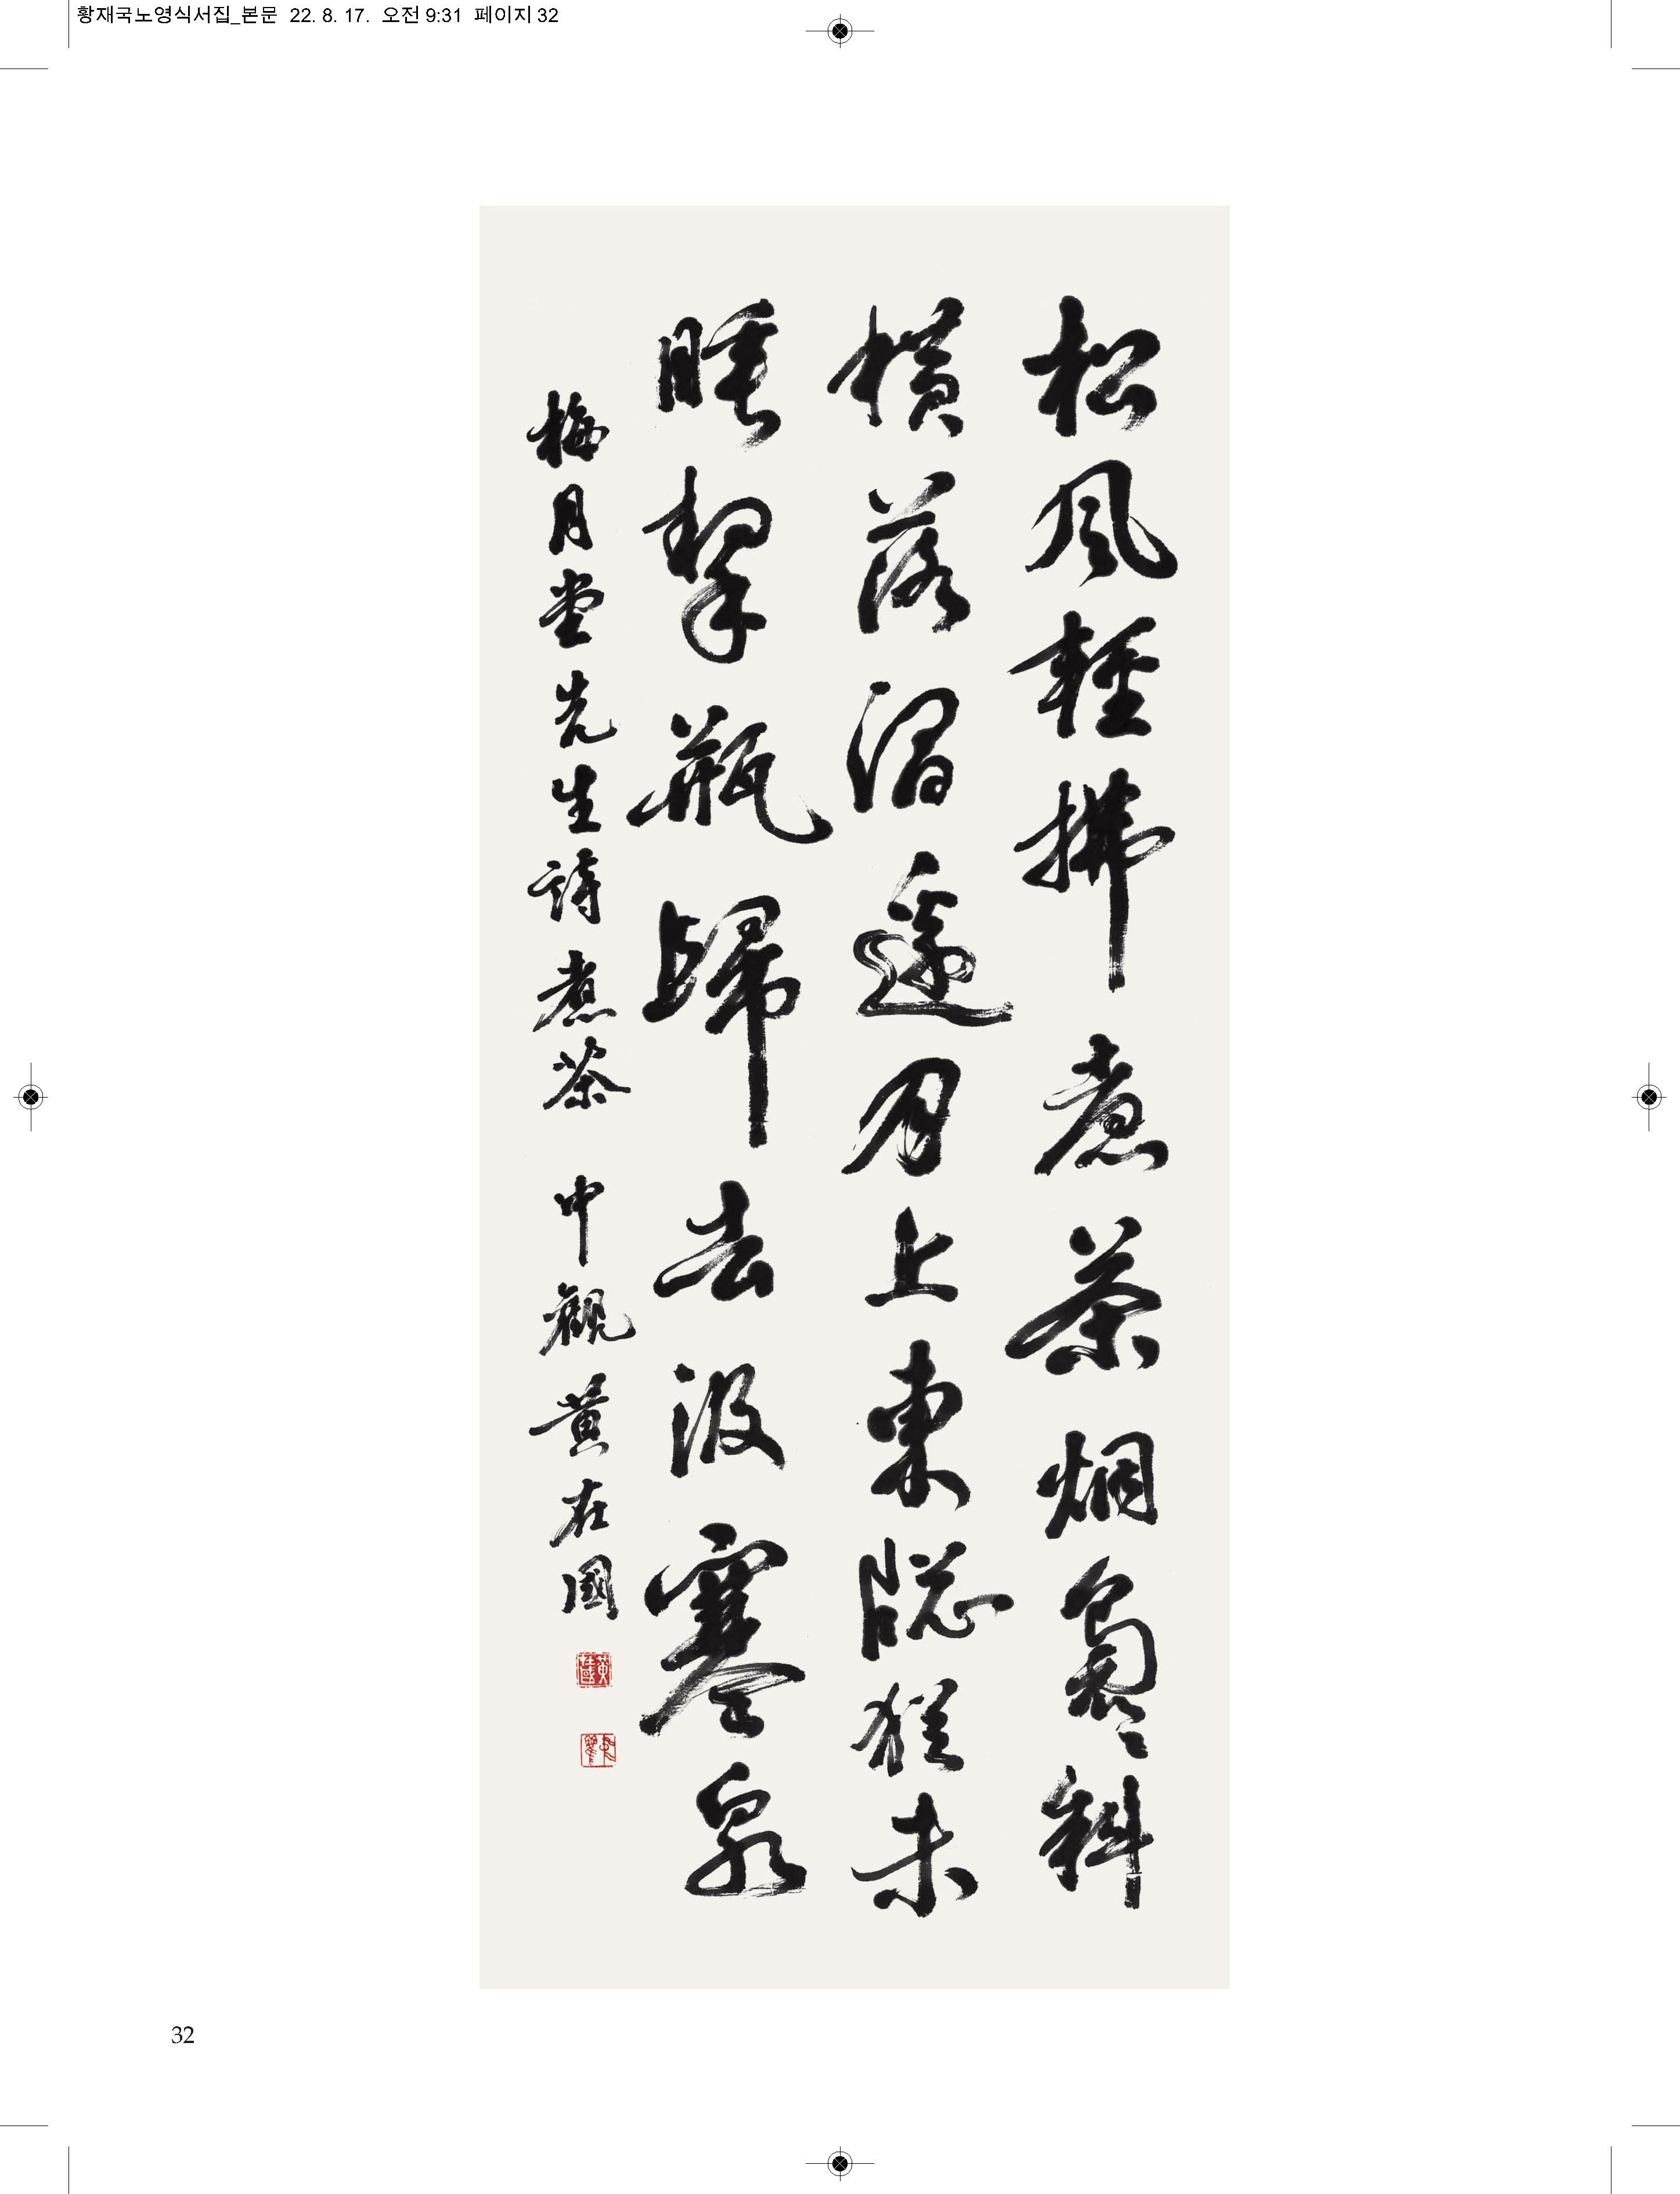 황재국노영식서집_본문 22. 8. 17. 오전 9:31 페이지 32
松風輕拂煮茶烟裊裊斜
橫落澗邊月上東牕猶未
睡挈甁歸去汲寒泉
梅月堂先生詩煮茶 中觀黃在國
黃在國
32